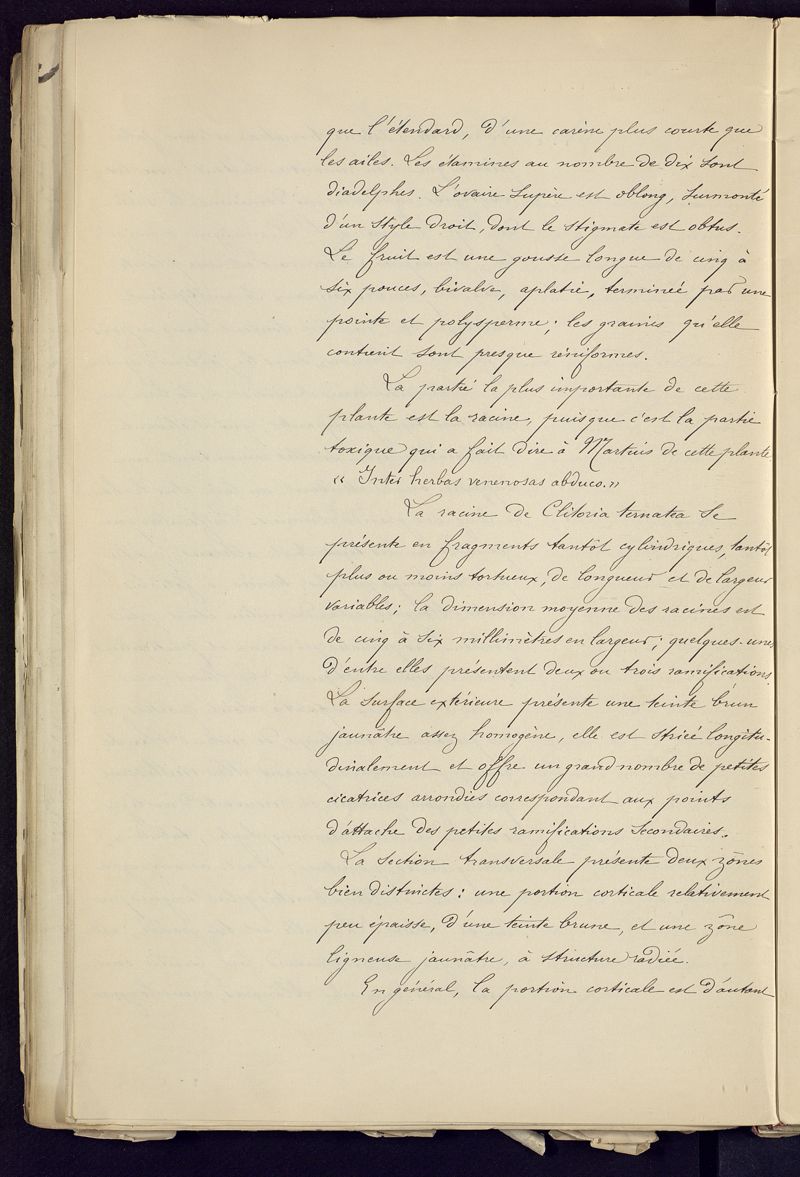 que l'étendard, d'une carène plus courte que
les ailes. Les étamines au nombre de dix sont
diadelphes. L'ovaire supère est oblong, surmonté
d'un style droit, dont le stigmate est obtus.
Le fruit est une gousse longue de cinq à
six pouces, bivalve, aplatie, terminée par une
pointe et polysperme; les graines qu'elle
contient sont presque réniformes.
La partie la plus importante de cette
plante est la racine, puisque c'est la partie
toxique qui a fait dire à Martius de cette plante
« Inter herbas venenosas abduco. »
La racine de Clitoria ternatea se
présente en fragments tantôt cylindriques, tantôt
plus ou moins tortueux, de longueur et de largeur
variables; la dimension moyenne des racines est
de cinq à six millimètres en largeur; quelques-unes
d'entre elles présentent deux ou trois ramifications.
La surface extérieure présente une teinte brun
jaunâtre assez homogène, elle est striée longitu-
dinalement et offre un grand nombre de petites
cicatrices arrondies correspondant aux points
d'attache des petites ramifications secondaires.
La section transversale présente deux zônes
bien distinctes: une portion corticale relativement
peu épaisse, d'une teinte brune, et une zône
ligneuse jaunâtre, à structure radiée.
En général, la portion corticale est d'autant